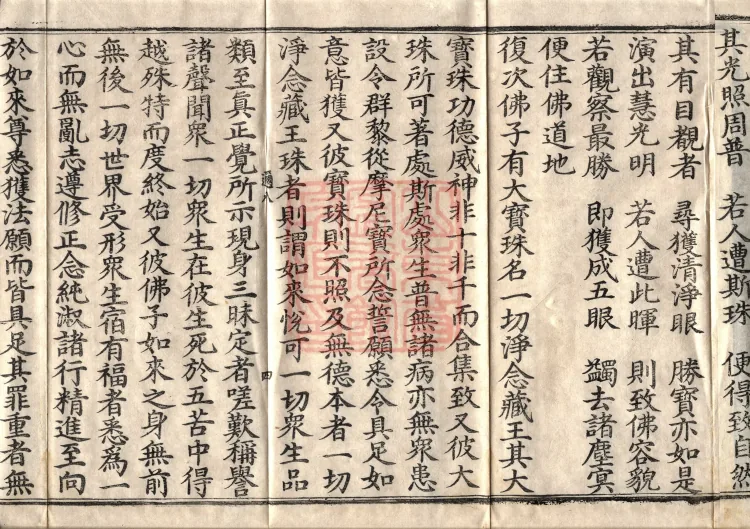 其光照周普　若人遭斯珠　便得致自然
其有目覩者　尋獲清淨眼　勝寶亦如是
演出慧光明　若人遭此暉　則致佛容貌
若觀察最勝　即獲成五眼　蠲去諸塵冥
便住佛道地
復次佛子有大寶珠名一切淨念藏王其大
寶珠功德威神非十非千而合集致又彼大
珠所可著處斯處衆生普無諸病亦無衆患
設令群黎從摩尼寶所念誓願悉令具足如
意皆獲又彼寶珠則不照及無德本者一切
淨念藏王珠者則謂如來悅可一切衆生品
類至真正覺所示現身三昧定者嗟歎稱譽
諸聲聞衆一切衆生在彼生死於五苦中得
越殊特而度終始又彼佛子如來之身無前
無後一切世界受形衆生宿有福者悉為一
心而無亂志遵修正念純淑諸行精進至向
於如來尊悉獲法願而皆具足其罪重者無